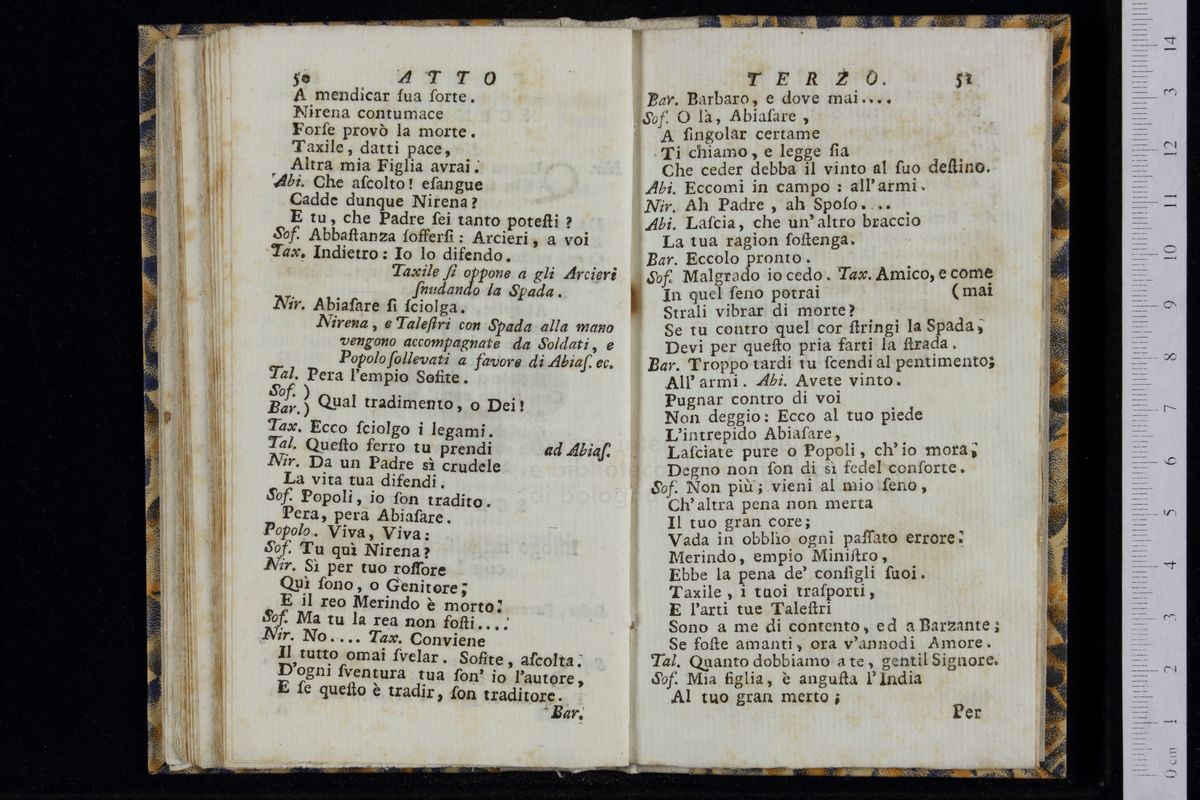 50 ATTO
A mendicar ſua ſorte.
Nirena contumace
Forſe provò la morte.
Taxile, datti pace,
Altra mia Figlia avrai.
Abi. Che aſcolto! eſangue
Cadde dunque Nirena?
E tu, che Padre ſei tanto poteſti?
Sof. Abbaſtanza ſofferſi: Arcieri, a voi
Tax. Indietro: Io lo difendo.
Taxile ſi oppone a gli Arcieri
ſnudando la Spada.
Nir. Abiaſare ſi ſciolga.
Nirena, e Taleſtri con Spada alla mano
vengono accompagnate da Soldati, e
Popolo ſollevati a favore di Abiaſ. ec.
Tal. Pera l'empio Sofite.
Sof. )
Bar. ) Qual tradimento, o Dei!
Tax. Ecco ſciolgo i legami.
Tal. Queſto ferro tu prendi ad Abiaſ.
Nir. Da un Padre sì crudele
La vita tua difendi.
Sof. Popoli, io ſon tradito.
Pera, pera Abiaſare.
Popolo. Viva, Viva:
Sof. Tu quì Nirena?
Nir. Sì per tuo roſſore
Quì ſono, o Genitore;
E il reo Merindo è morto.
Sof. Ma tu la rea non foſti....
Nir. No.... Tax. Conviene
Il tutto omai ſvelar. Sofite, aſcolta.
D'ogni ſventura tua ſon' io l'autore,
E ſe queſto è tradir, ſon traditore.
Bar.
TERZO. 51
Bar. Barbaro, e dove mai....
Sof. O là, Abiaſare,
A ſingolar certame
Ti chiamo, e legge ſia
Che ceder debba il vinto al ſuo deſtino.
Abi. Eccomi in campo: all'armi.
Nir. Ah Padre, ah Spoſo....
Abi. Laſcia, che un'altro braccio
La tua ragion ſoſtenga.
Bar. Eccolo pronto.
Sof. Malgrado io cedo. Tax. Amico, e come
In quel ſeno potrai (mai
Strali vibrar di morte?
Se tu contro quel cor ſtringi la Spada,
Devi per queſto pria farti la ſtrada.
Bar. Troppo tardi tu ſcendi al pentimento;
All' armi. Abi. Avete vinto.
Pugnar contro di voi
Non deggio: Ecco al tuo piede
L'intrepido Abiaſare,
Laſciate pure o Popoli, ch'io mora;
Degno non ſon di sì fedel conſorte.
Sof. Non più; vieni al mio ſeno,
Ch'altra pena non merta
Il tuo gran core;
Vada in obblìo ogni paſſato errore.
Merindo, empio Miniſtro,
Ebbe la pena de' conſigli ſuoi.
Taxile, i tuoi traſporti,
E l'arti tue Taleſtri
Sono a me di contento, ed a Barzante;
Se foſte amanti, ora v'annodi Amore.
Tal. Quanto dobbiamo a te, gentil Signore.
Sof. Mia figlia, è anguſta l'India
Al tuo gran merto;
Per